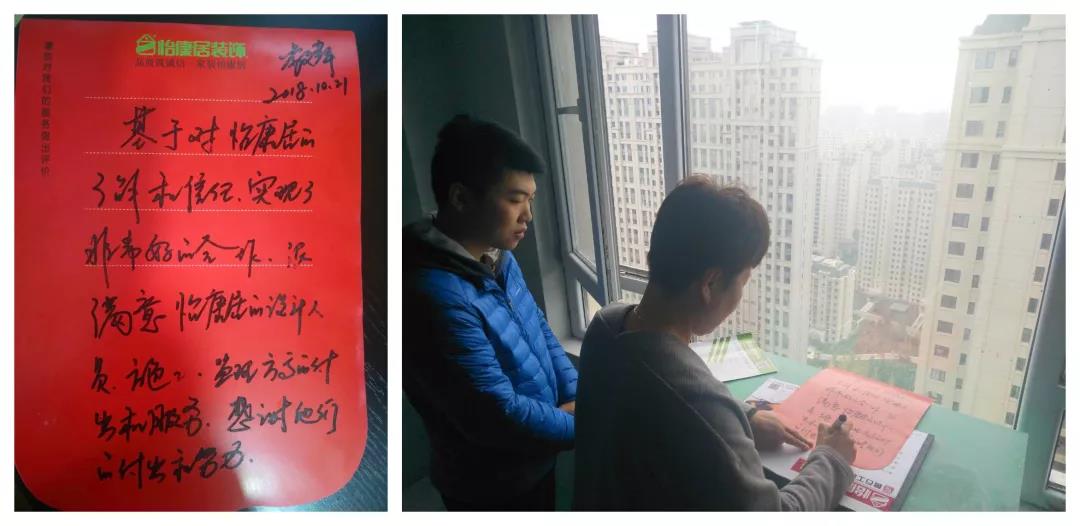 怡康居装饰
品质践诚信 家装怡康居
家装对我们的服务做出评价
2018.10.21
基于对怡康居的
了解和信任、实现了
非常好的合作、很
满意怡康居的设计人
员、施工、监理方面的付
出和服务. 感谢他们
的付出和努力.